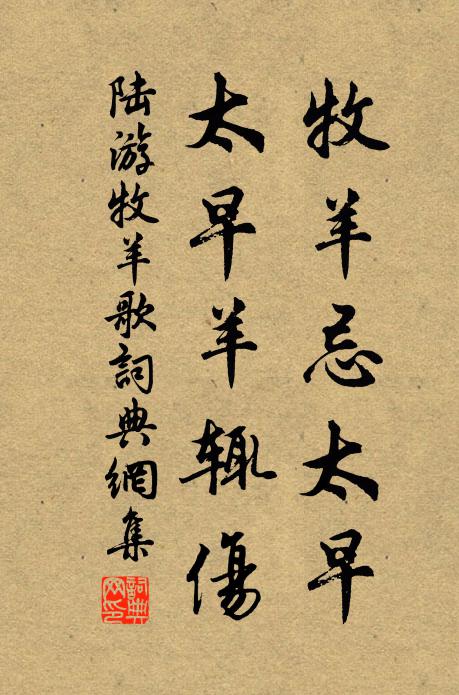 牧羊忌太早
太早羊辄傷
陸游牧羊歌詞典網集
詞典
网印